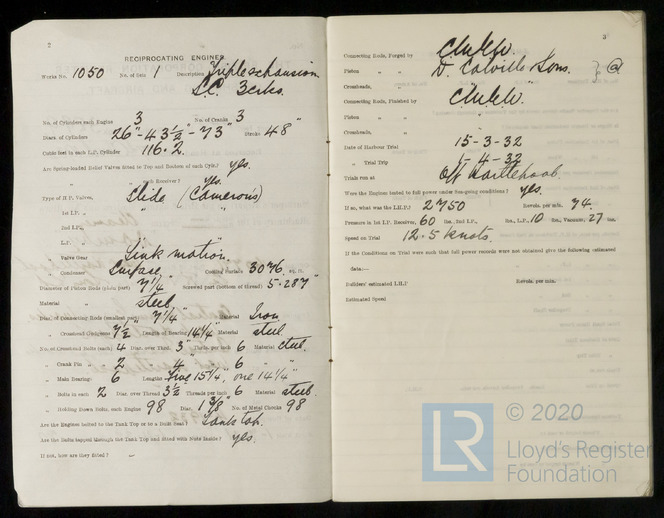 2
RECIPROCATING ENGINES
Works No. 1050 No. of Sets 1 Description Triple expansion
S.C. 3 cyls.
No. of Cylinders each Engine 3 No. of Cranks 3
Diars. of Cylinders 26" - 43½" - 73" Stroke 48"
Cubic feet in each L.P. Cylinder 116.2
Are Spring-loaded Relief Valves fitted to Top and Bottom of each Cyldr.? Yes.
" " each Receiver? yes.
Type of H.P. Valves, Slide (Cameron's)
1st I.P. "
2nd I.P. "
L.P. "
" Valve Gear Link motion.
" Condenser Surface Cooling Surface 3076 sq. ft.
Diameter of Piston Rods (plain part) 7¼" Screwed part (bottom of thread) 5.287"
Material " steel
Diar. of Connecting Rods (smallest part) 7¼" Material Iron
" Crosshead Gudgeons 7½" Length of Bearing 14¼" Material steel.
No. of Crosshead Bolts (each) 4 Diar. over Thrd. 3" Thrds. per inch 6 Material steel.
" Crank Pin " 2 " 4" " 6 "
" Main Bearing 6 Lengths five 15¼", one 14¼"
" Bolts in each 2 Diar. over Thread 3½ Threads per inch 6 Material steel.
" Holding Down Bolts, each Engine 98 Diar. 1⅜" No. of Metal Chocks 98
Are the Engines bolted to the Tank Top or to a Built Seat? Tank top.
Are the Bolts tapped through the Tank Top and fitted with Nuts Inside? yes.
If not, how are they fitted? –
3
Connecting Rods, Forged by
Piston " " D. Colville & Sons.
Crossheads, "
Connecting Rods, Finished by
Piston " "
Crossheads, "
Date of Harbour Trial 15-3-32
" Trial Trip 1-4-32
Trials run at Off Hartlepool
Were the Engines tested to full power under Sea-going conditions? yes.
If so, what was the I.H.P.? 2750 Revols. per min. 74.
Pressure in 1st I.P. Receiver, 60 lbs., 2nd I.P., lbs., L.P., 10 lbs., Vacuum, 27 ins.
Speed on Trial 12.5 knots.
If the Conditions on Trial were such that full power records were not obtained give the following estimated
data:—
Builders' estimated I.H.P. Revols. per min.
Estimated Speed
LR © 2020
Lloyd's Register
Foundation